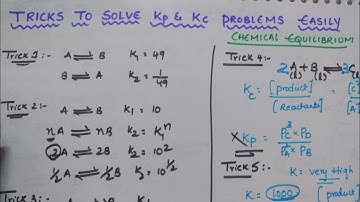 TRICKS TO SOLVE Kp & Kc PROBLEMS EASILY
CHEMICAL EQUILIBRIUM
Trick 1:- A ⇌ B K₁ = 49
B ⇌ A K₂ = 1/49
Trick 2:- A ⇌ B K₁ = 10
nA ⇌ nB K₂ = K₁ⁿ
2A ⇌ 2B K₂ = 10²
1/2 A ⇌ 1/2 B K₂ = 10^1/2
Trick 4:-
2A + B ⇌ 3C
(l) (l)
Kc = [product] / [Reactants]
[C]
[A]
X Kp = Pc² × PD / PA² × PB
Trick 5:-
K = very High
K = 1000 [product]